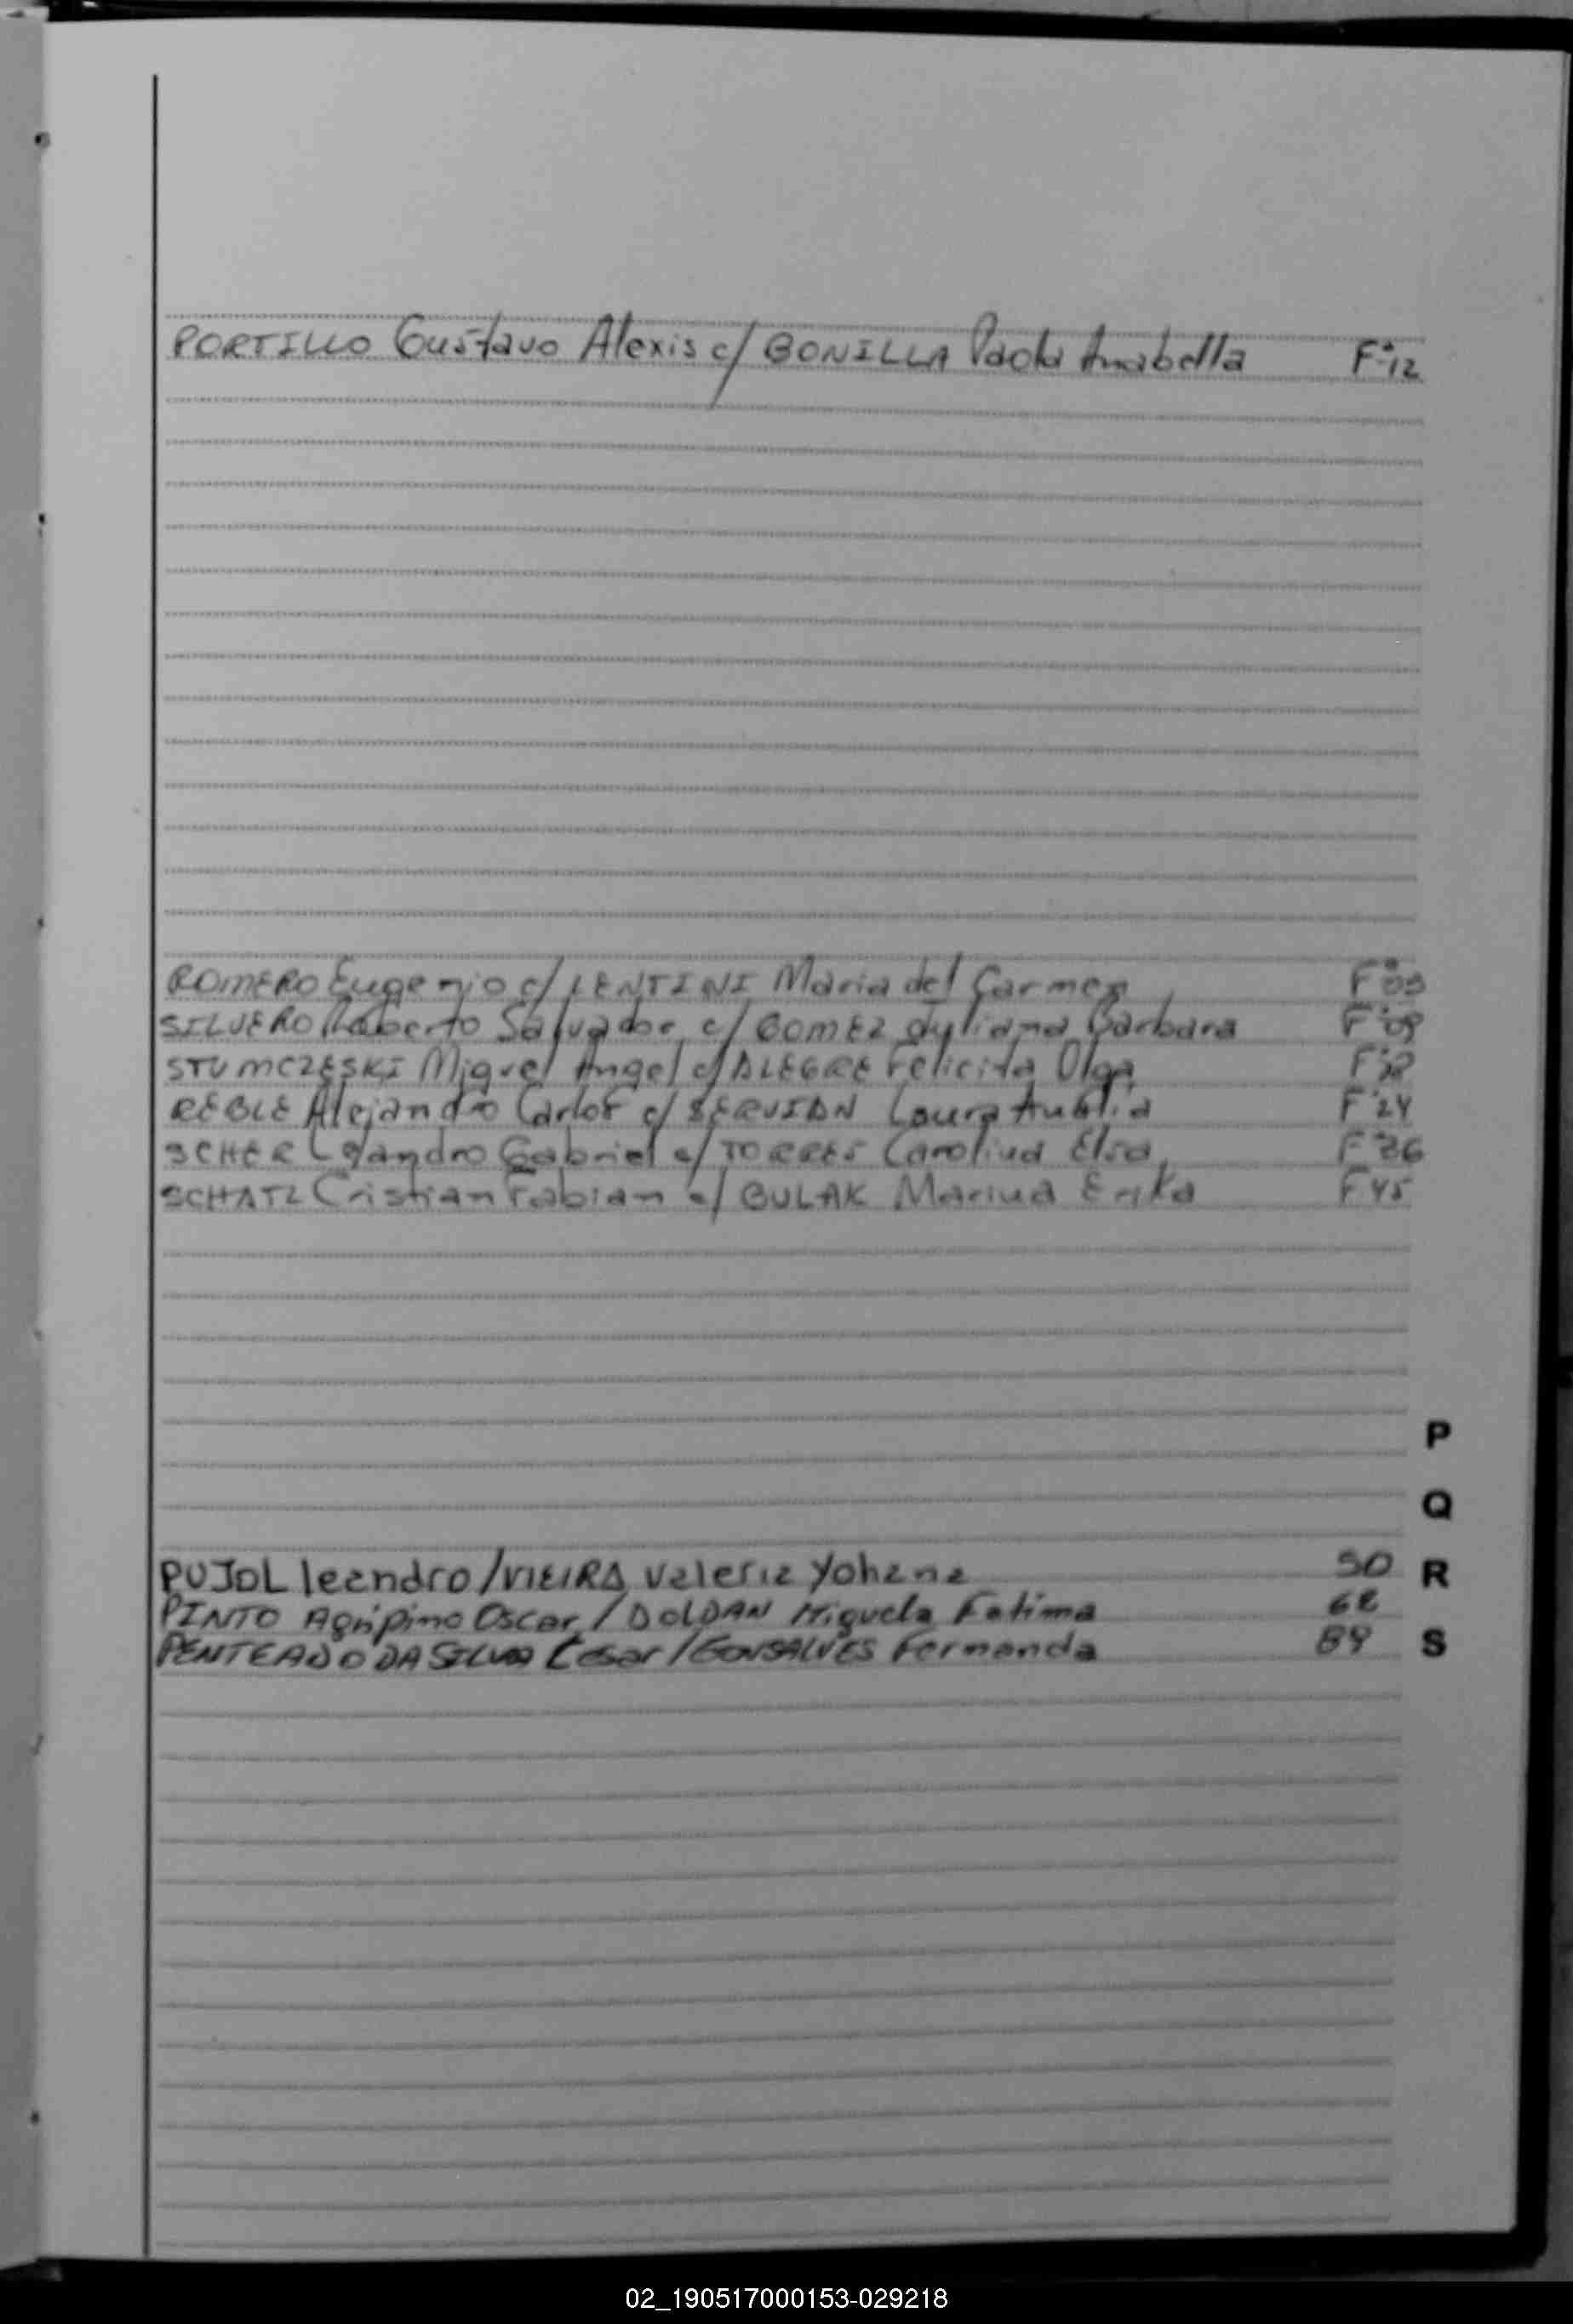 PORTILLO Gustavo Alexis c/ BONILLA Paola Anabella F°12
ROMERO Eugenio c/ LENTINI Maria del Carmen F°03
SILVERO Roberto Salvador c/ GOMEZ Barbara F°09
STUMCZESKI Miguel Angel c/ ALEGRE Felicita Olga
REGLE Alejandro Carlos c/ SERVIAN Laura F°24
SCHER Gabriel c/ TORRES Carolina Elsa F°36
SCHATZ Cristian Fabian c/ BULAK Marina Erika F°45
P
Q
PUJOL leandro / VIEIRA Valeria Yohana 50 R
PINTO Agripino Oscar / DOLDAN Miguela Fatima 68
PENTEADO DA SILVA Cesar / GONSALVES Fernanda 89 S
02_190517000153-029218